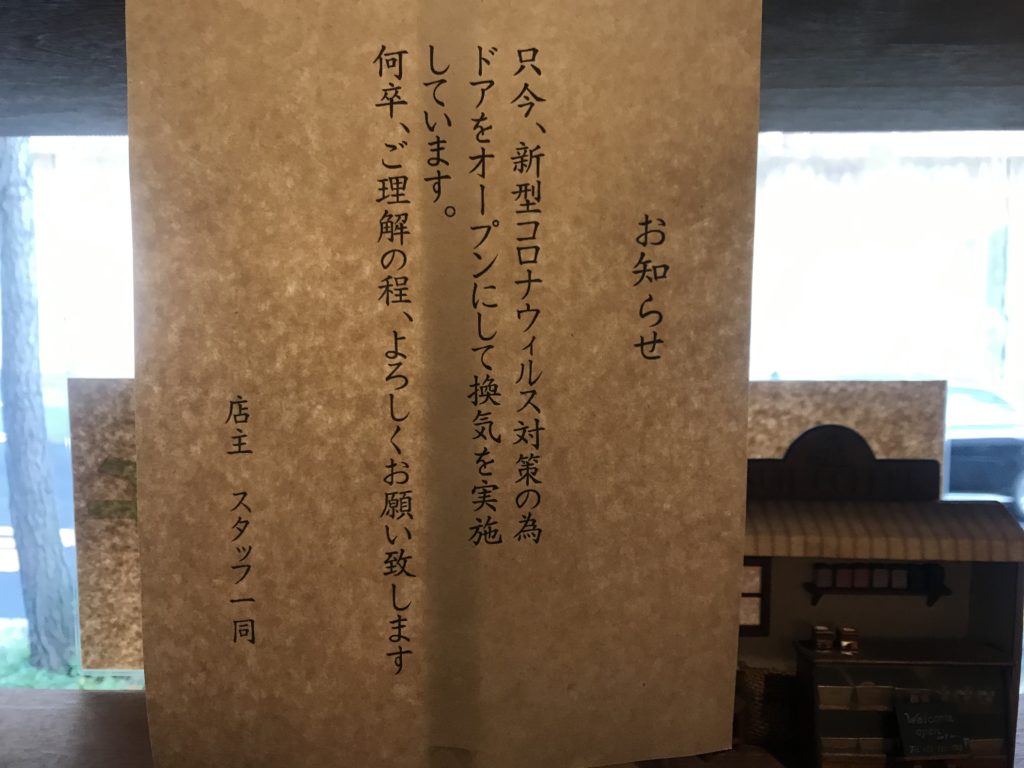 お知らせ
只今、新型コロナウィルス対策の為
ドアをオープンにして換気を実施
しています。
何卒、ご理解の程、よろしくお願い致します
店主 スタッフ一同
Welcome
open